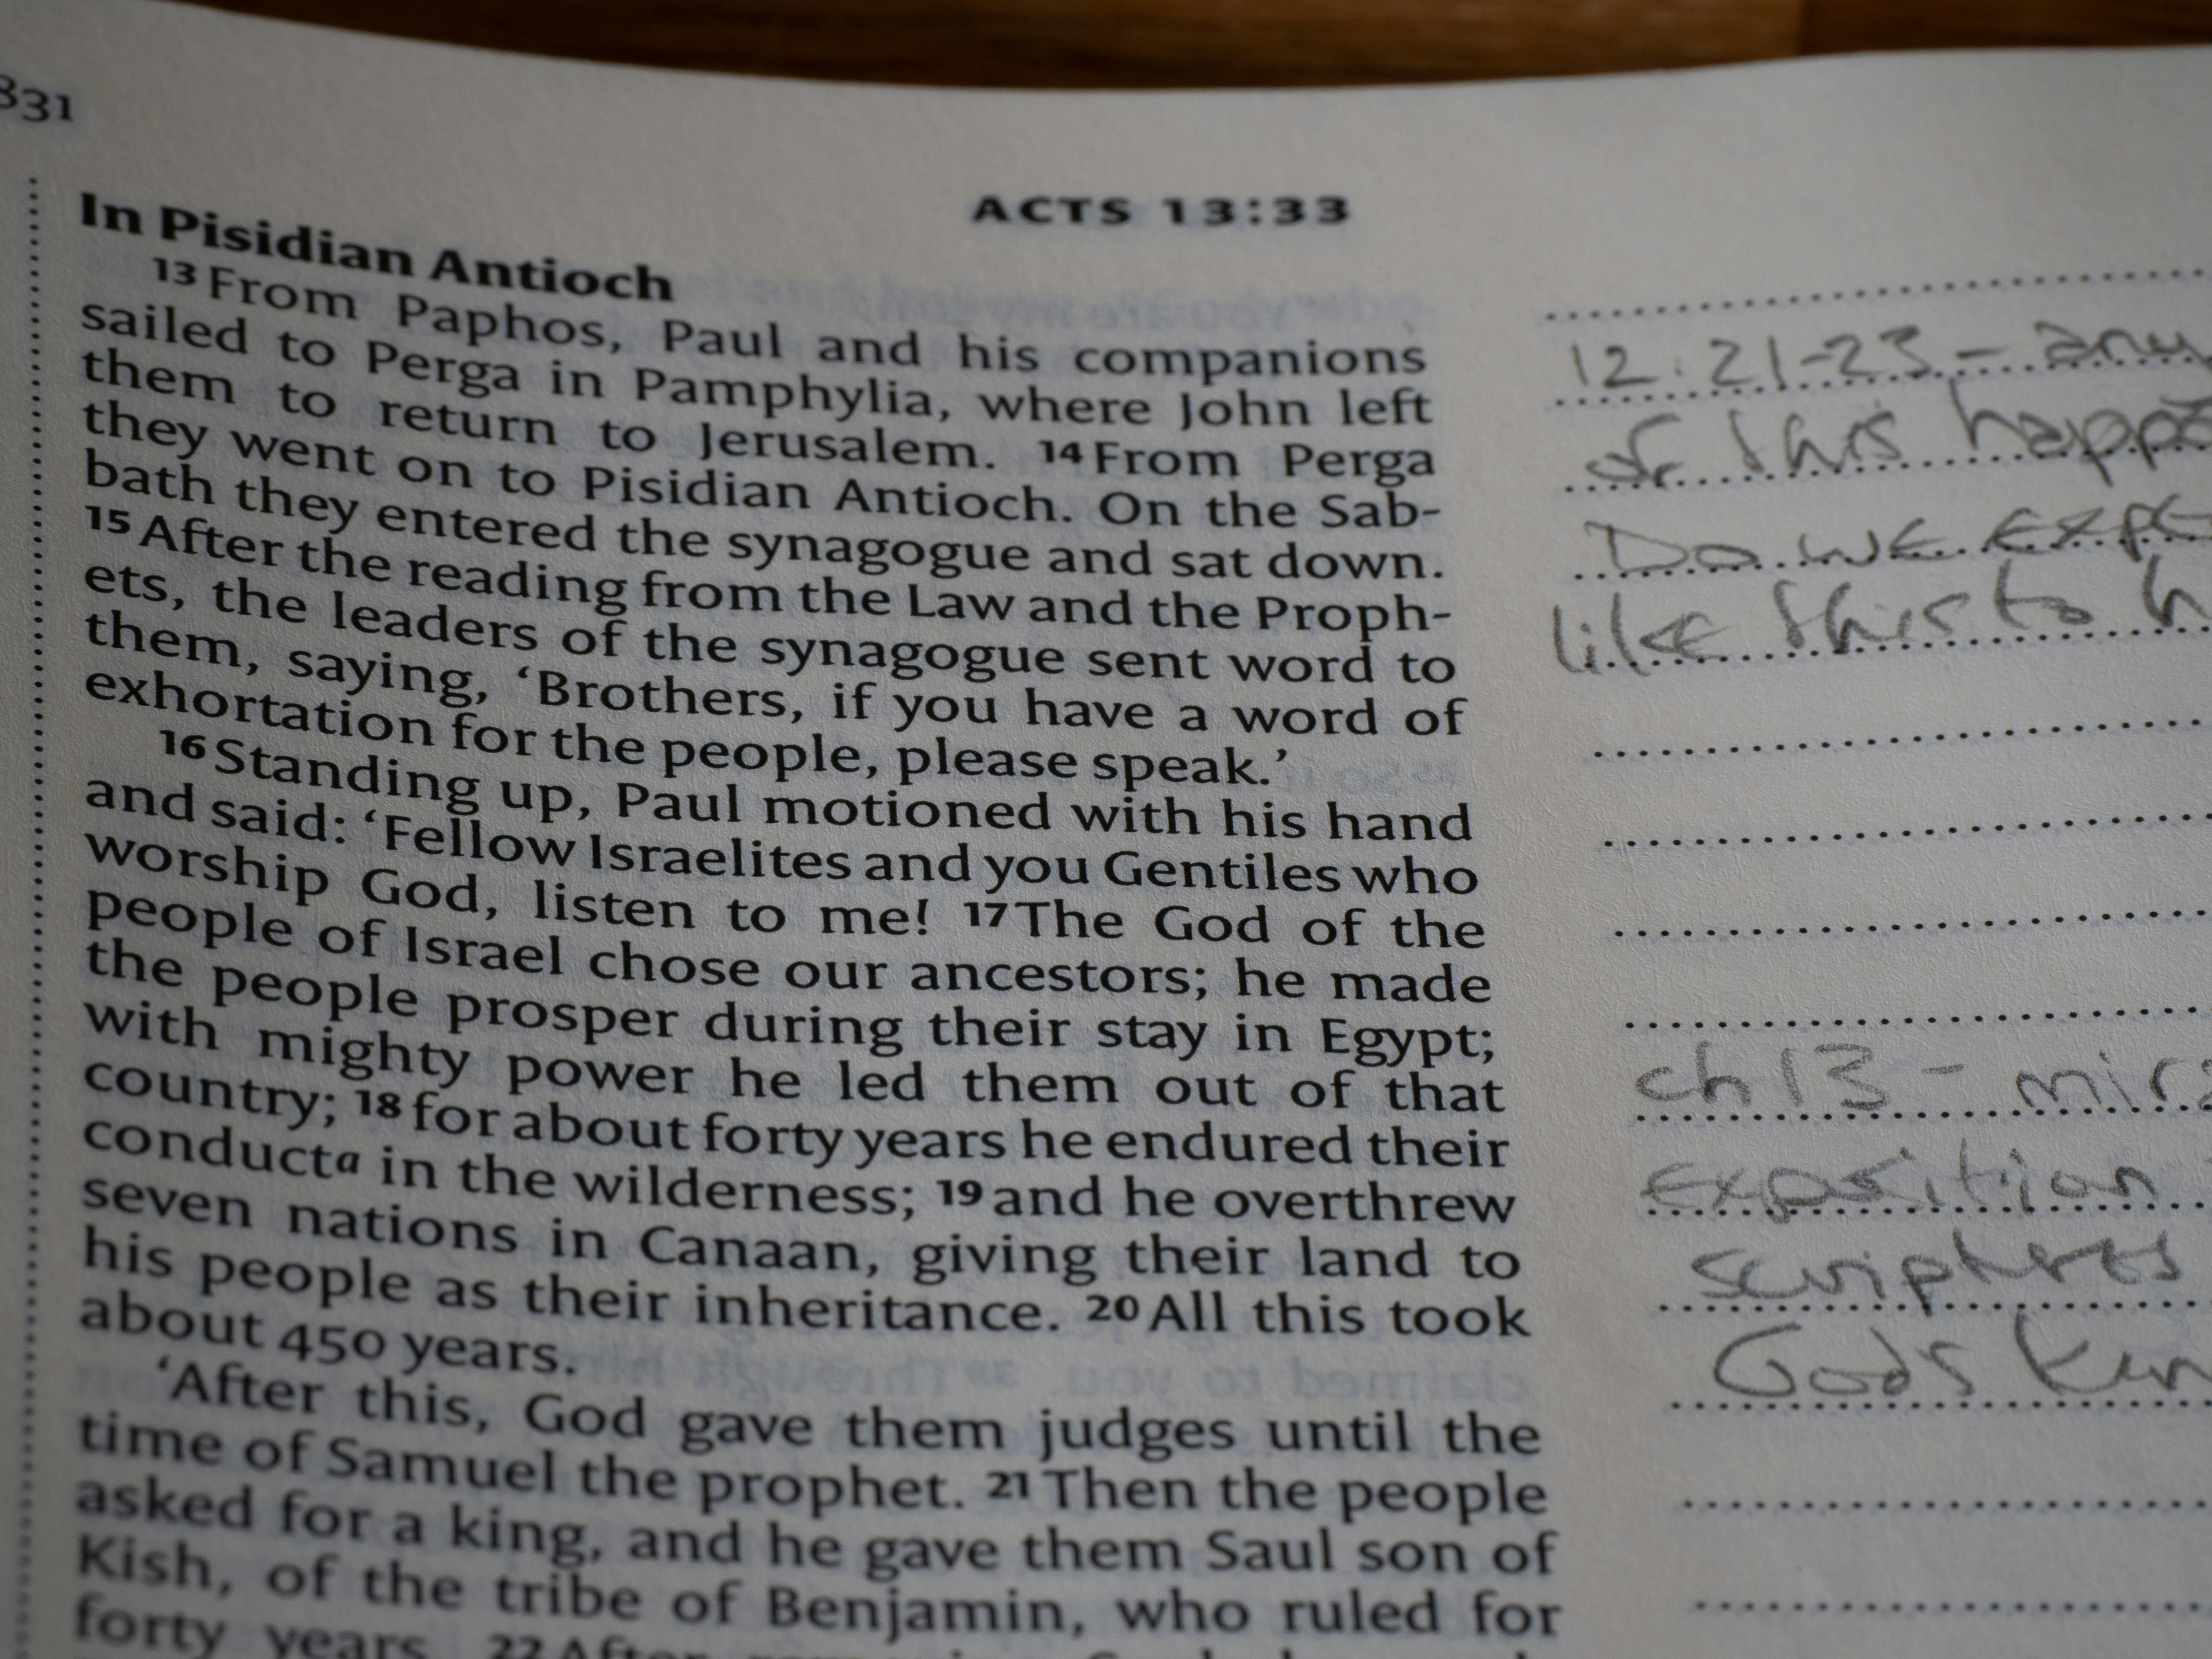 831
ACTS 13:33
In Pisidian Antioch
13 From Paphos, Paul and his companions
sailed to Perga in Pamphylia, where John left
them to return to Jerusalem. 14 From Perga
they went on to Pisidian Antioch. On the Sab-
bath they entered the synagogue and sat down.
15 After the reading from the Law and the Proph-
ets, the leaders of the synagogue sent word to
them, saying, ‘Brothers, if you have a word of
exhortation for the people, please speak.’
16 Standing up, Paul motioned with his hand
and said: ‘Fellow Israelites and you Gentiles who
worship God, listen to me! 17 The God of the
people of Israel chose our ancestors; he made
the people prosper during their stay in Egypt;
with mighty power he led them out of that
country; 18 for about forty years he endured their
conduct a in the wilderness; 19 and he overthrew
seven nations in Canaan, giving their land to
his people as their inheritance. 20 All this took
about 450 years.
‘After this, God gave them judges until the
time of Samuel the prophet. 21 Then the people
asked for a king, and he gave them Saul son of
Kish, of the tribe of Benjamin, who ruled for
forty years. 22 After
12:21-23 - any
of this happ
Do we expe
like this to h
ch 13 - mir
exposition
God's